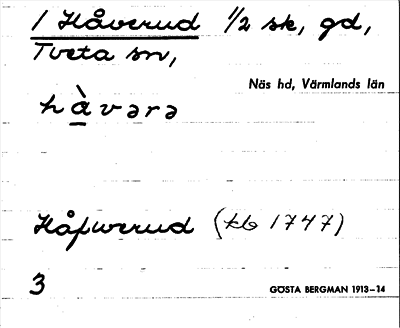 1 Håverud 1/2 sk, gd,
Tveta sn,
Näs hd, Värmlands län
hà̱vərə
Håfwerud (kb 1747)
3
GÖSTA BERGMAN 1913–14